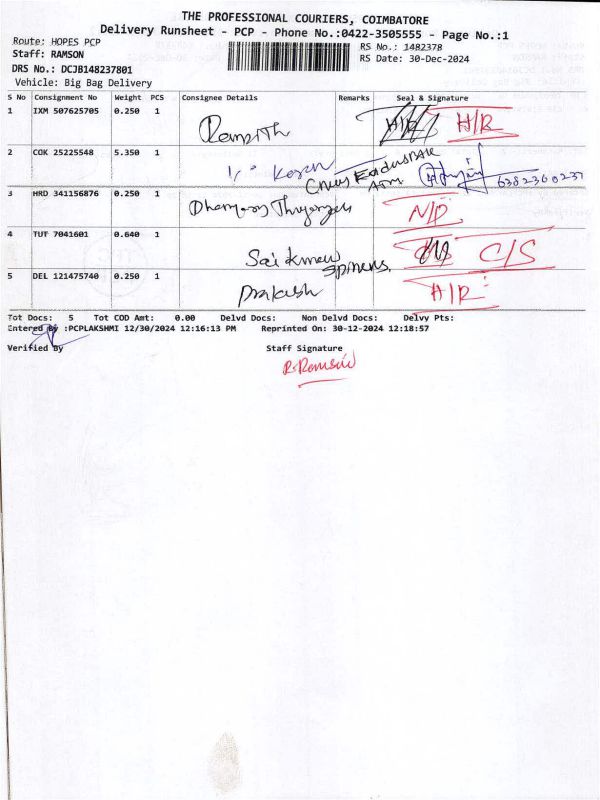 THE PROFESSIONAL COURIERS, COIMBATORE
Delivery Runsheet - PCP - Phone No.:0422-3505555 - Page No.:1
Route: HOPES PCP
RS No.: 1482378
Staff: RAMSON
RS Date: 30-Dec-2024
DRS No.: DCJB148237801
Vehicle: Big Bag Delivery
S No Consignment No Weight PCS Consignee Details Remarks Seal & Signature
1 IXM 507625705 0.250 1 H/R H/R
2 COK 25225548 5.350 1
ATM. 6382360237
3 HRD 341156876 0.250 1 N/D
4 TUT 7041601 0.640 1 C/S
5 DEL 121475740 0.250 1 Prakash H/R
Tot Docs: 5 Tot COD Amt: 0.00 Delvd Docs: Non Delvd Docs: Delvy Pts:
Entered By :PCPLAKSHMI 12/30/2024 12:16:13 PM Reprinted On: 30-12-2024 12:18:57
Verified By Staff Signature